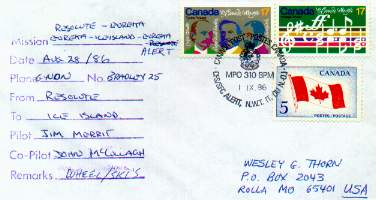 RESOLUTE - EUREKA
Mission EUREKA - ICE ISLAND - EUREKA
ALERT
Date AUG 28/86
Plane GNON No. BRADLEY 25
From RESOLUTE
To ICE ISLAND
Pilot JIM MERRIT
Co-Pilot JOHN McCULLAGH
Remarks WHEEL/SKI'S
Canada 17
Canada 17
MPO 310 BPM
CFS/SFC ALERT, N.W.T.
1 IX 86
CANADA
5
POSTES-POSTAGE
WESLEY G. THORN
P.O. BOX 2043
ROLLA MO 65401 USA